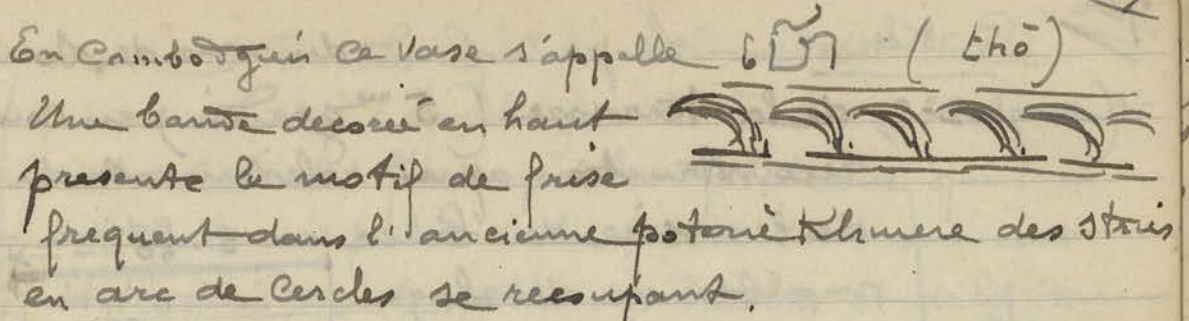 En Cambodgien ce vase s'appelle ថូ (thō)
Une bande decorée en haut
presente le motif de frise
frequent dans l'ancienne poterie Khmere des stries
en arc de Cercles se recoupant.